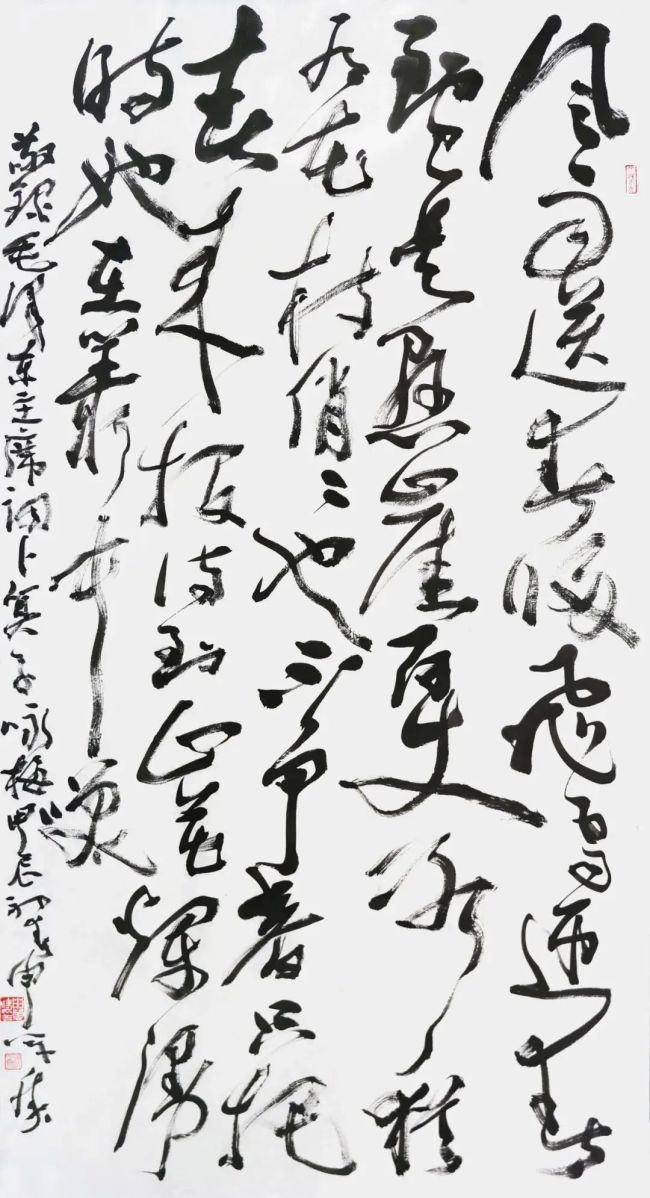 风雨送春归飛雪迎春
到已是懸崖百丈冰犹
有花枝俏〻也不争春只把
春来报待到山花烂漫
时她在叢中笑
敬録毛泽东主席词卜算子咏梅甲辰初春申